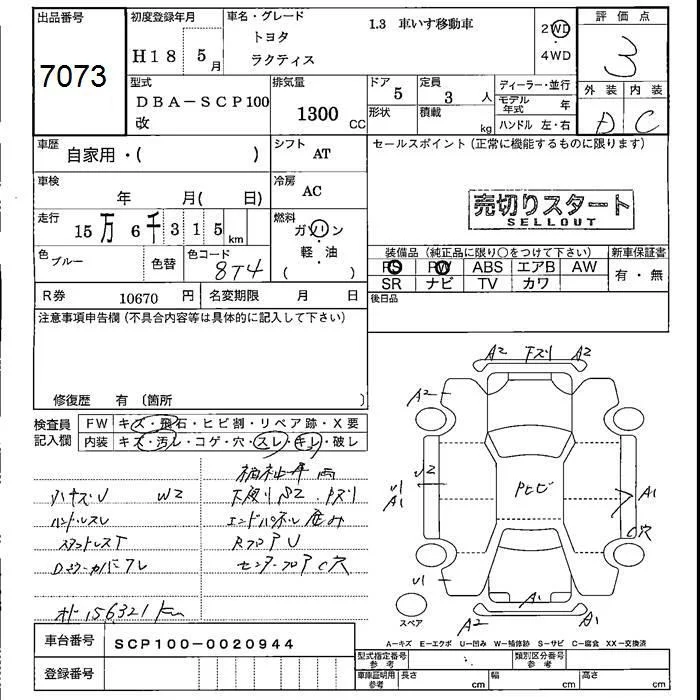 出品番号
7073
初度登録年月
H18 5月
車名・グレード
トヨタ
ラクティス
1.3 車いす移動車
2WD
・
4WD
評価点
3
外装 内装
D C
型式
DBA-SCP100
改
排気量
1300 CC
ドア 5
形状
定員 3 人
積載 kg
ディーラー・並行
モデル年式 年
ハンドル 左・右
車歴
自家用・( )
シフト AT
セールスポイント (正常に機能するものに限ります)
車検
年 月( 日)
冷房 AC
売切りスタート
SELLOUT
走行
15万6千315km
燃料
ガソリン
・
軽・油
( )
色 ブルー
色替
色コード
8T4
装備品 (純正品に限り○をつけて下さい)
PS PW ABS エアB AW
SR ナビ TV カワ
新車保証書
有・無
R券 10670 円
名変期限 月 日
後日品
注意事項申告欄 (不具合内容等は具体的に記入して下さい)
修復歴 有 (箇所 )
検査員
記入欄
FW キズ・飛石・ヒビ割・リペア跡・X要
内装 キズ・汚レ・コゲ・穴・スレ・キレ・破レ
福祉車両
W2
ハンドルスレ
エンドパネル
オドメーター
A2 下ズリ A2
A2
U2
U1
A1
Pヒビ
A1
C穴
U1
A1
A2
A2
スペア
A-キズ E-エクボ U-凹み W-補修跡 S-サビ C-腐食 XX-交換済
車台番号 SCP100-0020944
登録番号
型式指定番号
参考
類別区分番号
参考
車庫証明用
参考
長さ cm
幅 cm
高さ cm